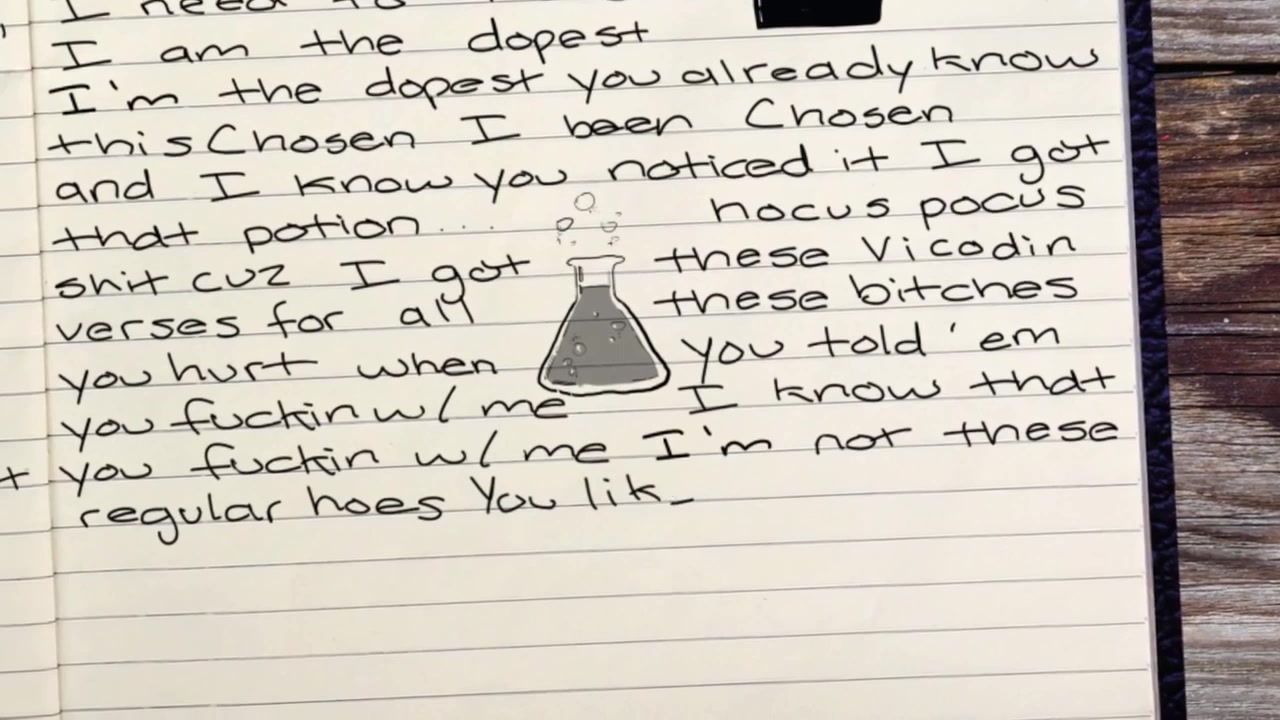 I need to
I am the dopest
I'm the dopest you already know
this Chosen I been Chosen
and I know you noticed it I got
that potion... hocus pocus
shit cuz I got these Vicodin
verses for all these bitches
you hurt when you told 'em
you fuckin w/ me I know that
you fuckin w/ me I'm not these
regular hoes You lik